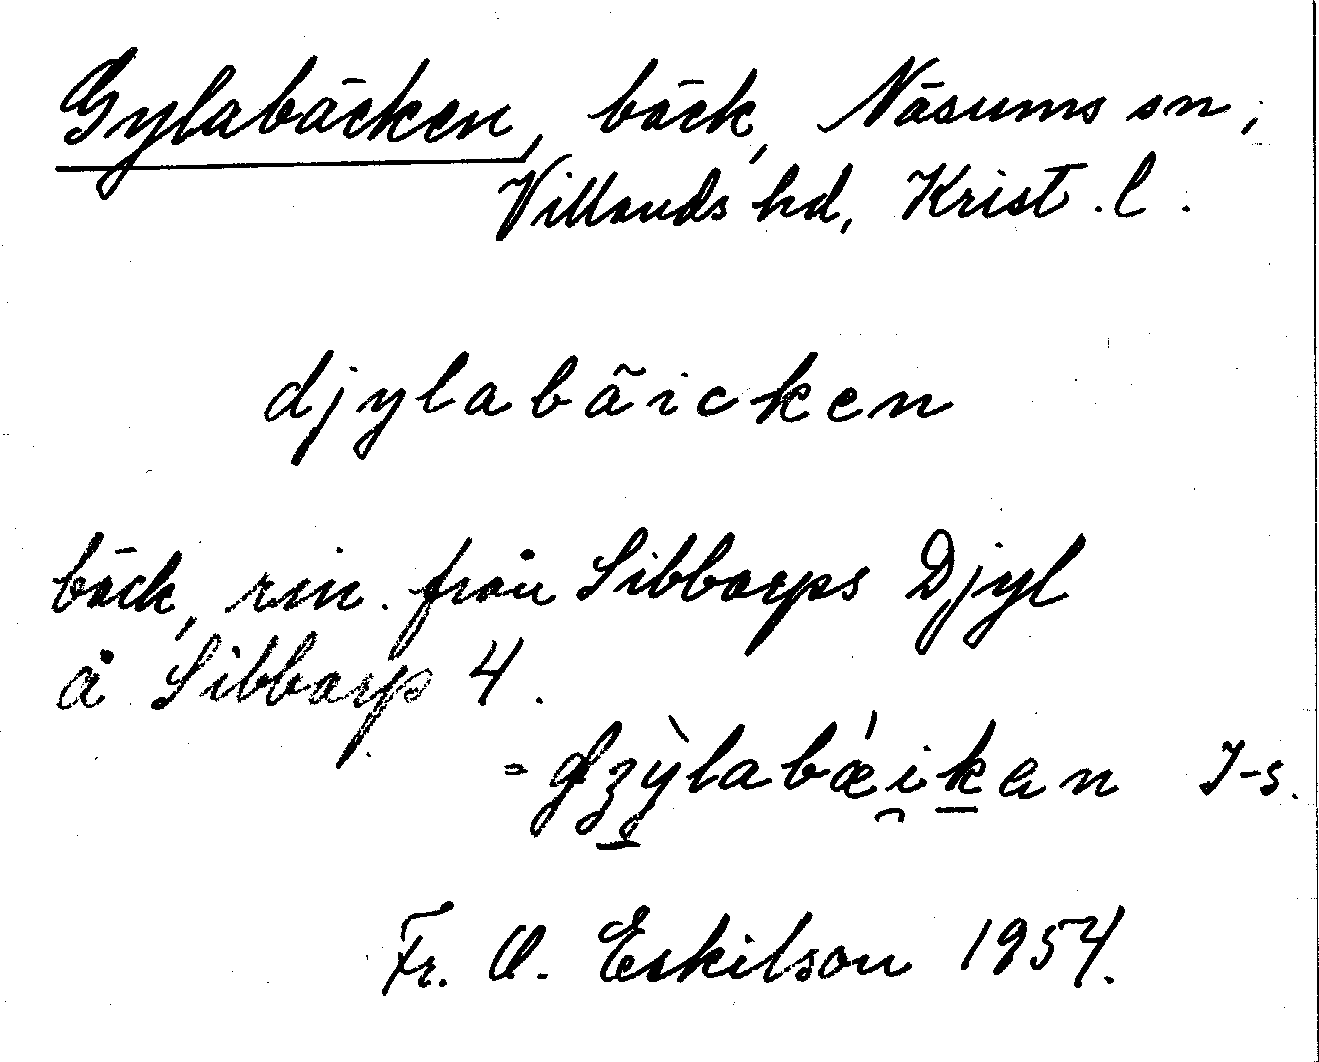 Gylabäcken, bäck, Näsums sn,
Villands hd, Krist. l.
djylabäicken
bäck, rin. från Sibbarps Djyl
å Sibbarp 4.
I-s.
Fr. O. Eskilson 1954.